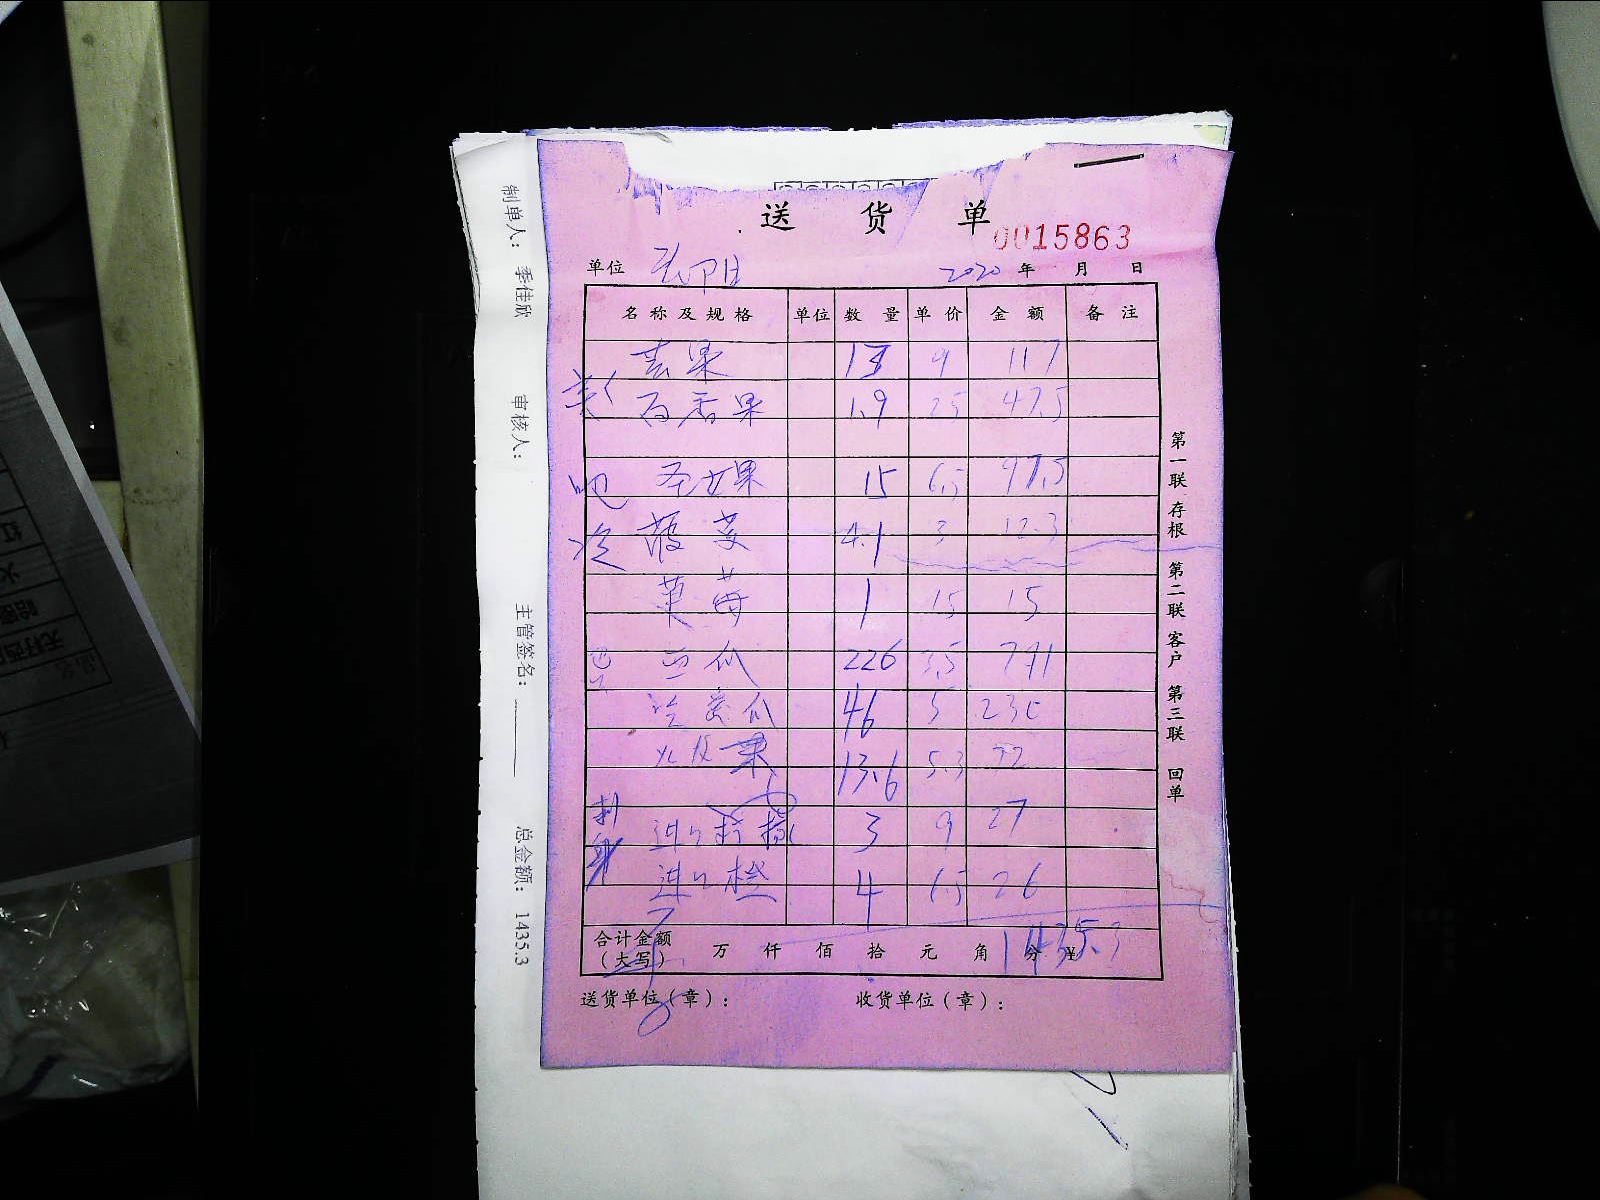 送货单
0015863
单位 2020 年 月 日
名称及规格 单位 数量 单价 金额 备注
吉果 13 9 117
百香果 1.9 25 47.5
圣女果 15 6.5 97.5
吧
菠菜 4.1 3 12.3
草莓 1 15 15
西瓜 226 3.5 791
哈密瓜 46 5 230
火龙果 13.6 5.3 72
刺身
进口柠檬 3 9 27
进口橙 4 6.5 26
合计金额（大写） 万 仟 佰 拾 元 角 分 ¥ 1435.3
送货单位（章）： 收货单位（章）：
第一联 存根 第二联 客户 第三联 回单
制单人： 季佳欣 审核人： 主管签名： 总金额： 1435.3